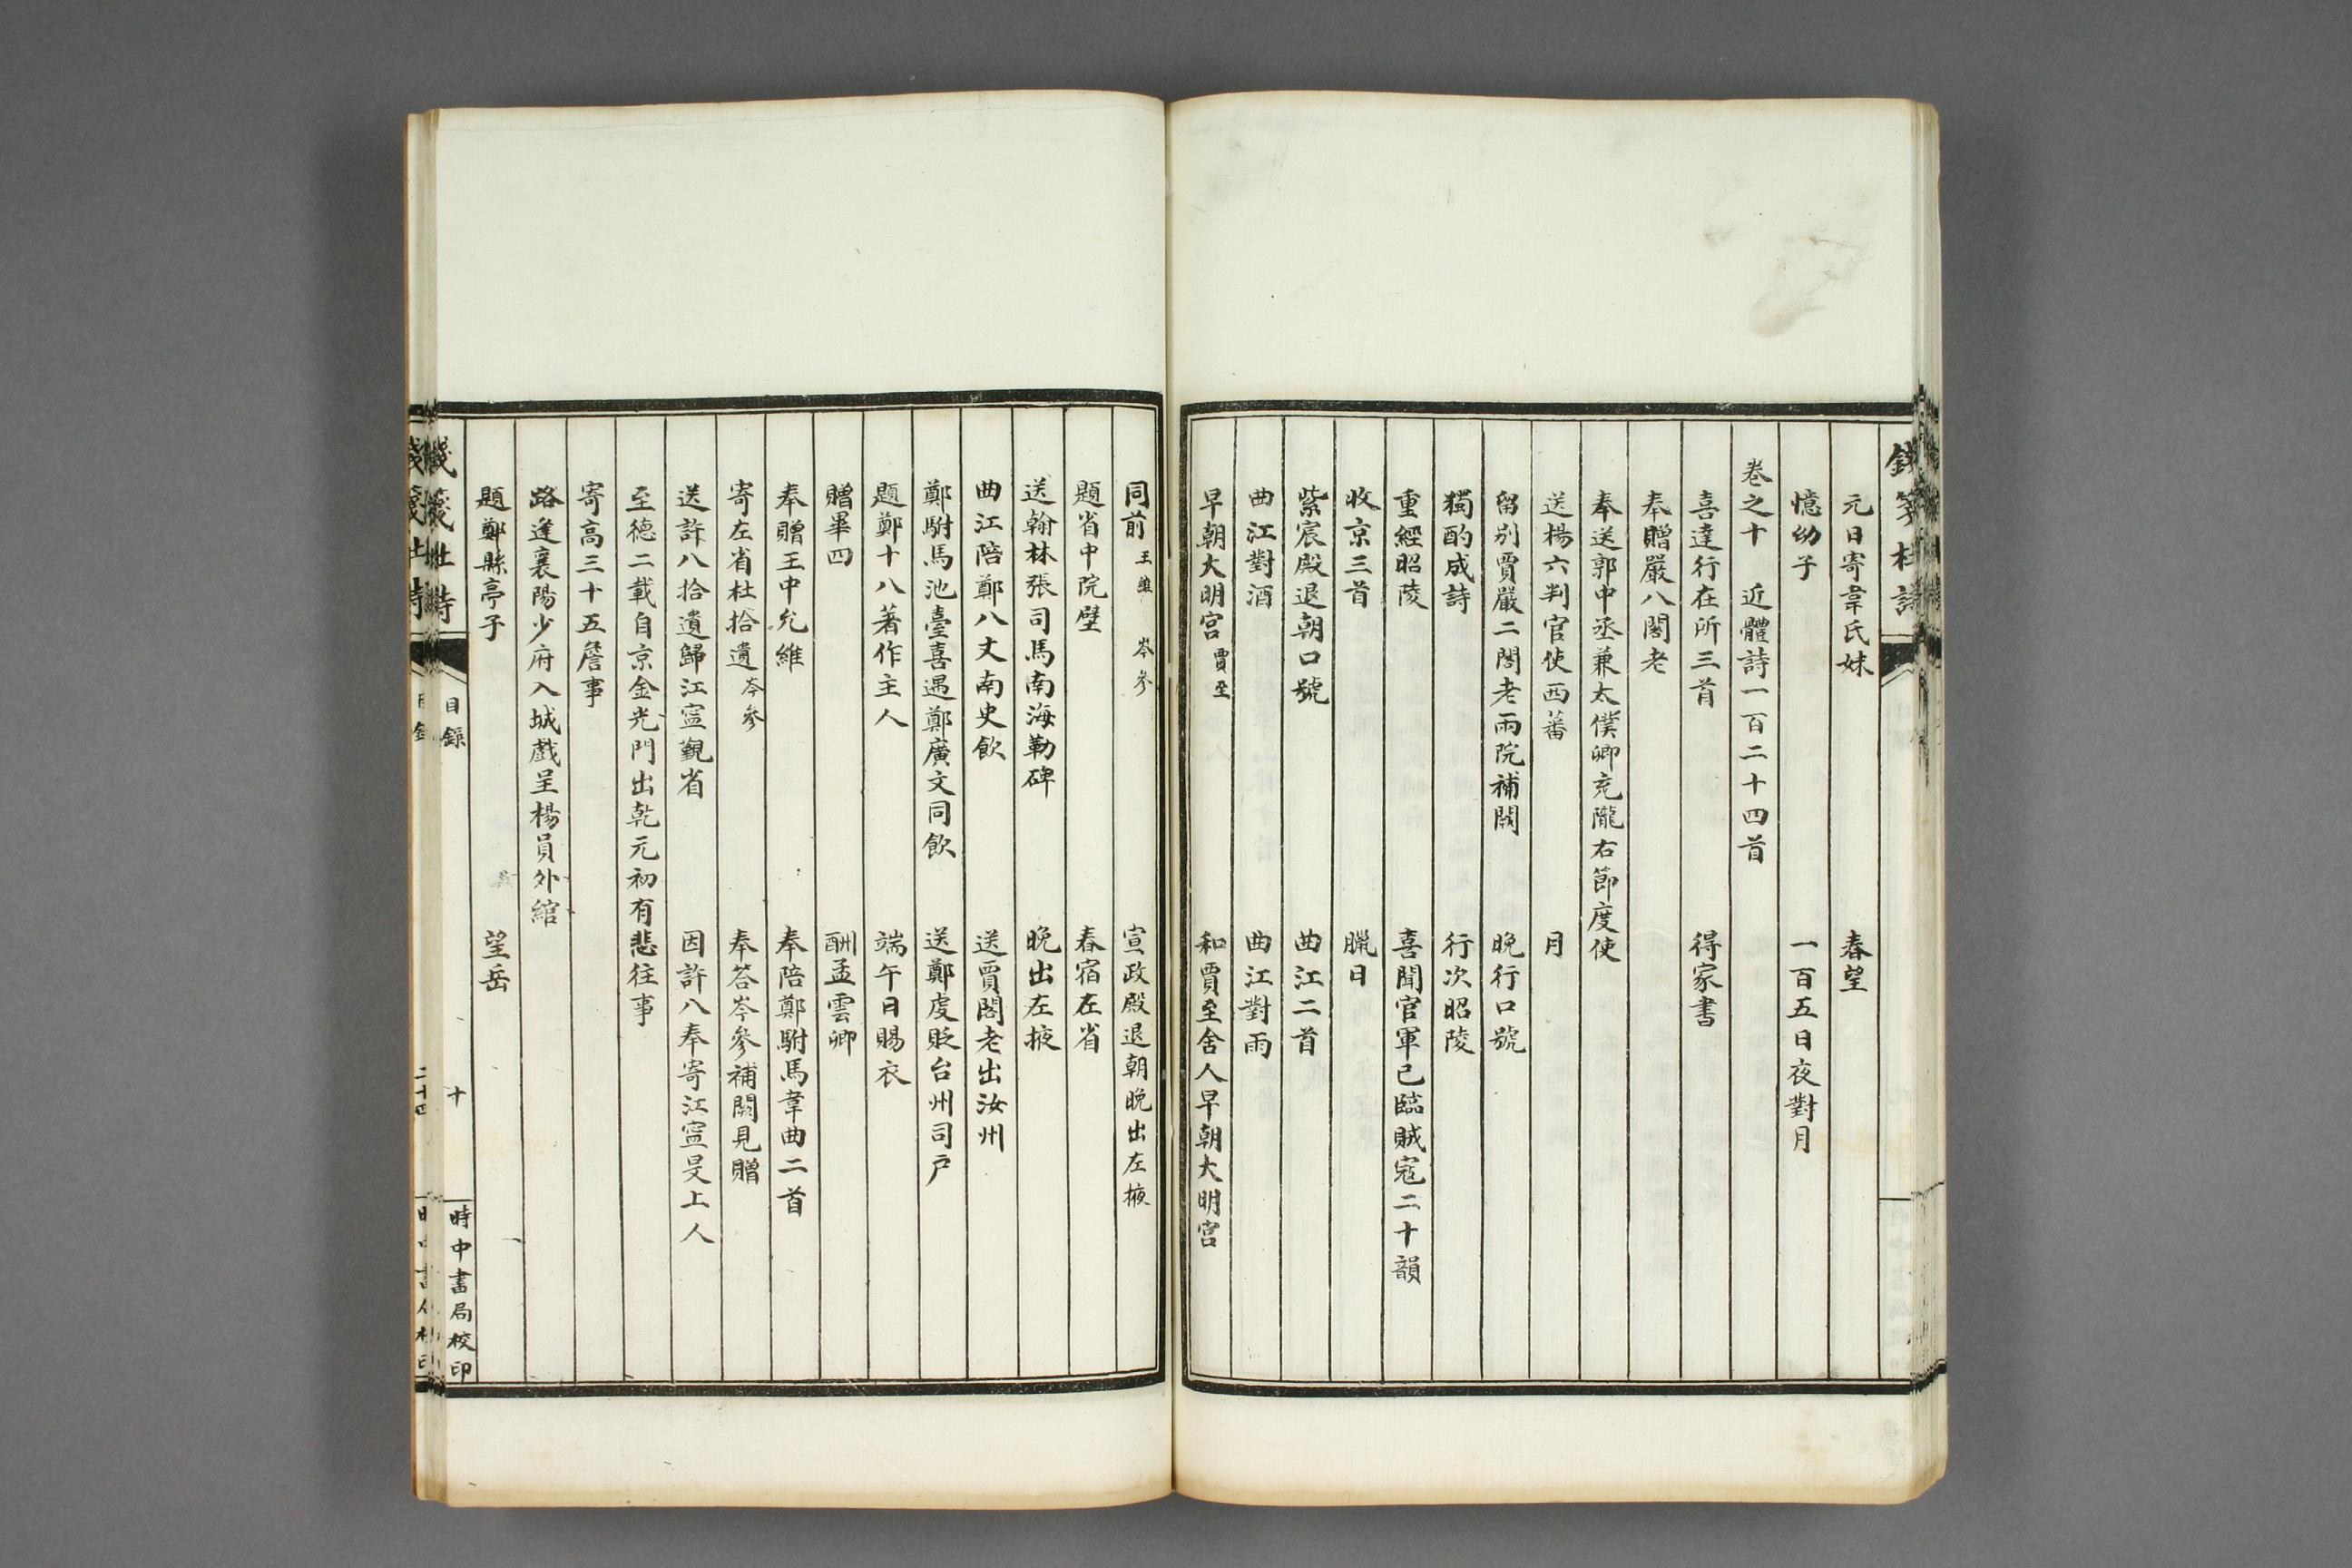 元日寄韋氏妹 春望
憶幼子 一百五日夜對月
卷之十 近體詩一百二十四首
喜達行在所三首 得家書
奉贈嚴八閣老
奉送郭中丞兼太僕卿充隴右節度使
送楊六判官使西蕃 月
留別賈嚴二閣老兩院補闕 晚行口號
獨酌成詩 行次昭陵
重經昭陵 喜聞官軍已臨賊寇二十韻
收京三首 臘日
紫宸殿退朝口號 曲江二首
曲江對酒 曲江對雨
早朝大明宮 賈至 和賈至舍人早朝大明宮
同前 王維 岑參 宣政殿退朝晚出左掖
題省中院壁 春宿左省
送翰林張司馬南海勒碑 晚出左掖
曲江陪鄭八丈南史飲 送賈閣老出汝州
鄭駙馬池臺喜遇鄭廣文同飲 送鄭虔貶台州司戶
題鄭十八著作主人 端午日賜衣
贈畢四 酬孟雲卿
奉贈王中允維 奉陪鄭駙馬韋曲二首
寄左省杜拾遺 岑參 奉答岑參補闕見贈
送許八拾遺歸江寍覲省 因許八奉寄江寍旻上人
至德二載自京金光門出乾元初有悲往事
寄高三十五詹事
路逢襄陽少府入城戲呈楊員外綰
題鄭縣亭子 望岳
目錄 十 時中書局校印